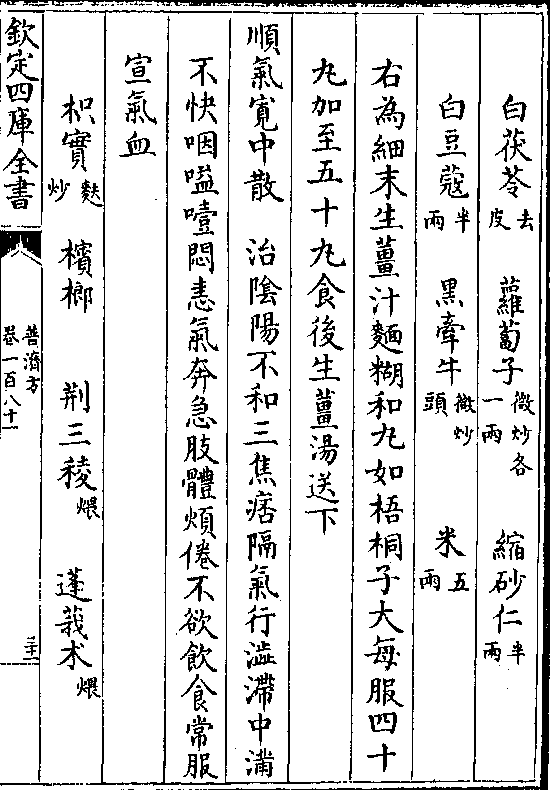 白茯苓去皮 蘿蔔子微炒各一兩 縮砂仁半兩
白豆蔻半兩 黑牽牛微炒頭 米五兩
右為細末生薑汁麵糊和丸如梧桐子大每服四十
丸加至五十丸食後生薑湯送下
順氣寬中散 治陰陽不和三焦痞隔氣行澁滯中滿
不快咽嗌噎悶恚氣奔急肢體煩倦不欲飲食常服
宣氣血
枳實麩炒 檳榔 荆三稜煨 蓬莪朮煨
欽定四庫全書
普濟方
卷一百八十一
三十一